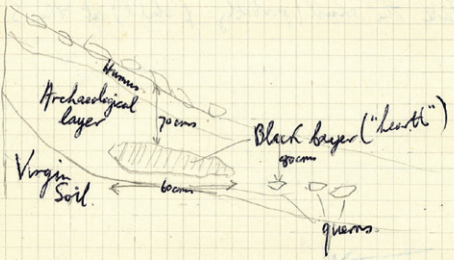 Humus
Archaeological
layer
70cms
Black layer ("hearth")
80cms
Virgin
Soil.
60cms
querns.